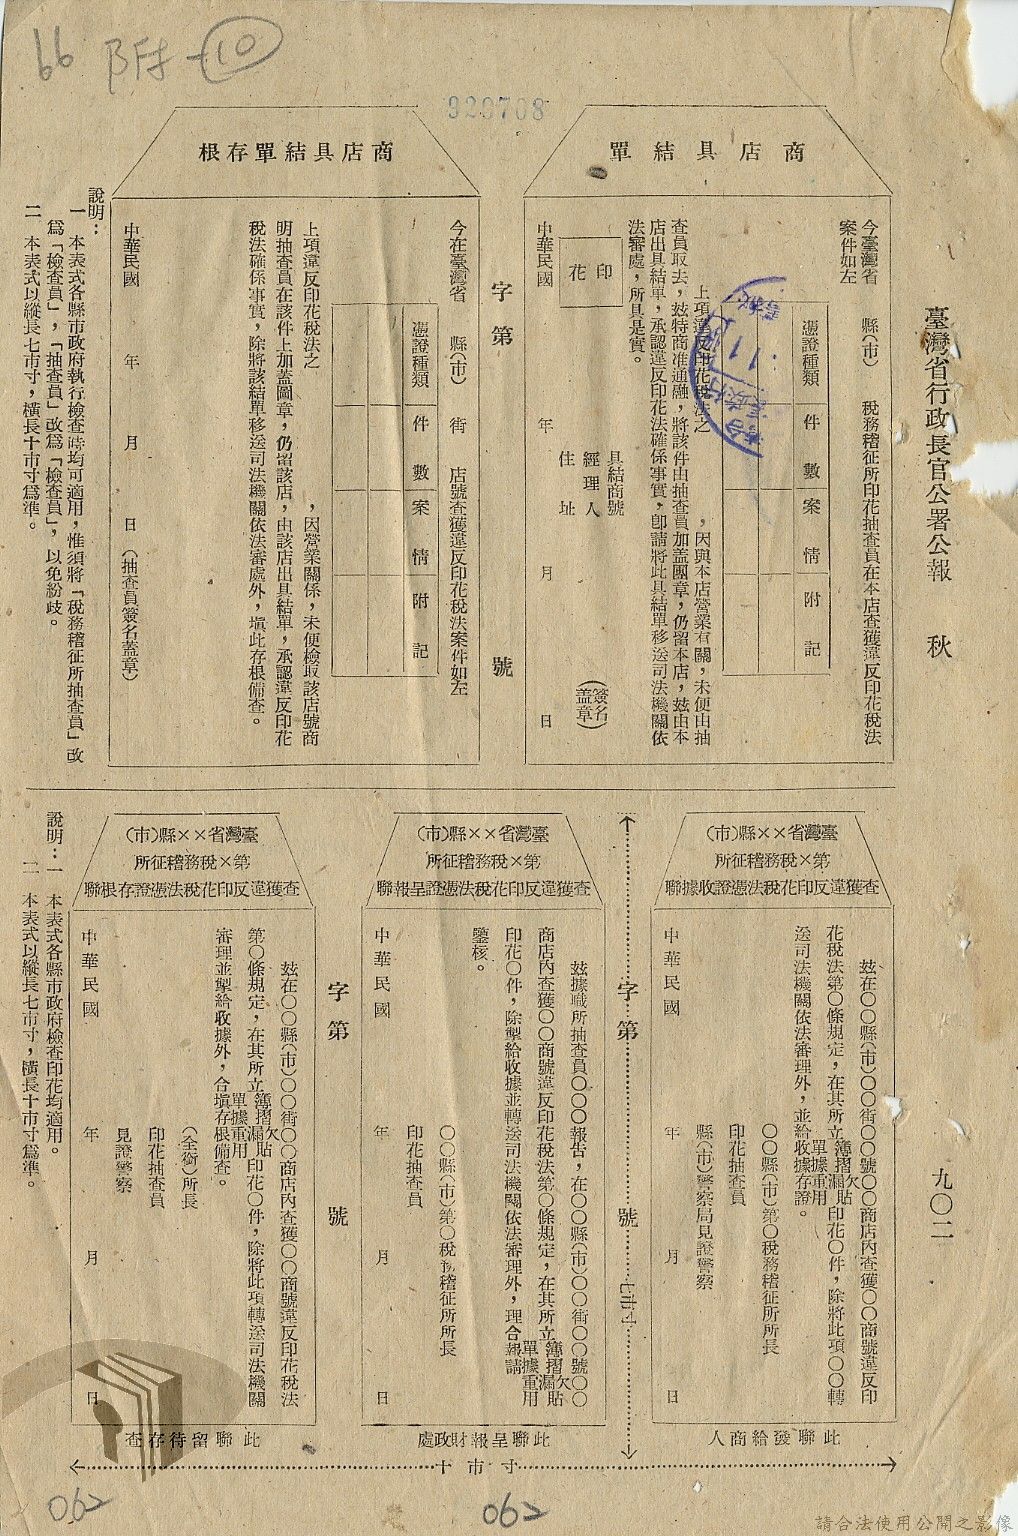 66 附-10
920708
臺灣省行政長官公署公報 秋 九〇二
商店具結單
今臺灣省 縣(市) 稅務稽征所印花抽查員在本店查獲違反印花稅法
案件如左
憑證種類 件數 案情 附記
上項違反印花稅法之 ，因與本店營業有關，未便由抽
查員取去，茲特商准通融，將該件由抽查員加盖圖章，仍留本店，茲由本
店出具結單，承認違反印花法確係事實，卽請將此具結單移送司法機關依
法審處，所具是實。
具結商號
經理人 (簽名盖章)
住址
印花
中華民國 年 月 日
字第 號
商店具結單存根
今在臺灣省 縣(市) 街 店號查獲違反印花稅法案件如左
憑證種類 件數 案情 附記
上項違反印花稅法之 ，因營業關係，未便檢取該店號商
明抽查員在該件上加蓋圖章，仍留該店，由該店出具結單，承認違反印花
稅法確係事實，除將該結單移送司法機關依法審處外，塡此存根備查。
中華民國 年 月 日(抽查員簽名蓋章)
說明：
一 本表式各縣市政府執行檢查時均可適用，惟須將「稅務稽征所抽查員」改
爲「檢查員」，「抽查員」改爲「檢查員」，以免紛歧。
二 本表式以縱長七市寸，橫長十市寸爲準。
臺灣省××縣(市)
第×稅務稽征所
查獲違反印花稅法憑證收據聯
茲在〇〇縣(市)〇〇街〇〇號〇〇商店內查獲〇〇商號違反印
花稅法第〇條規定，在其所立簿摺欠漏貼單據重用印花〇件，除將此項〇〇轉
送司法機關依法審理外，並給收據存證。
〇〇縣(市)第〇稅務稽征所所長
印花抽查員
縣(市)警察局見證警察
中華民國 年 月 日
此聯發給商人
字第 號 七市寸
臺灣省××縣(市)
第×稅務稽征所
查獲違反印花稅法憑證呈報聯
茲據職所抽查員〇〇〇報告，在〇〇縣(市)〇〇街〇〇號〇〇
商店內查獲〇〇商號違反印花稅法第〇條規定，在其所立簿摺欠漏貼單據重用
印花〇件，除掣給收據並轉送司法機關依法審理外，理合報請
鑒核。
〇〇縣(市)第〇稅務稽征所所長
印花抽查員
中華民國 年 月 日
此聯呈報財政處
字第 號
臺灣省××縣(市)
第×稅務稽征所
查獲違反印花稅法憑證存根聯
茲在〇〇縣(市)〇〇街〇〇商店內查獲〇〇商號違反印花稅法
第〇條規定，在其所立簿摺欠漏貼單據重用印花〇件，除將此項轉送司法機關
審理並掣給收據外，合塡存根備查。
(全銜)所長
印花抽查員
見證警察
中華民國 年 月 日
此聯留待存查
十市寸
說明：一 本表式各縣市政府檢查印花均適用。
二 本表式以縱長七市寸，橫長十市寸爲準。
062
062
請合法使用公開之影像